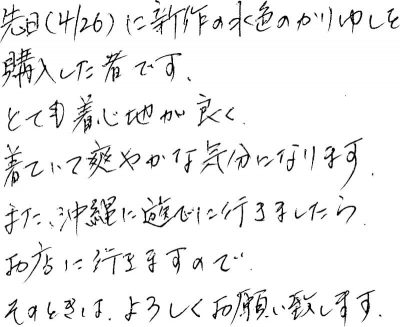 先日(4/26)に新作の水色のかりゆしを
購入した者です。
とても着心地が良く、
着ていて爽やかな気分になります。
また、沖縄に遊びに行きましたら、
お店に行きますので、
そのときは、よろしくお願い致します。